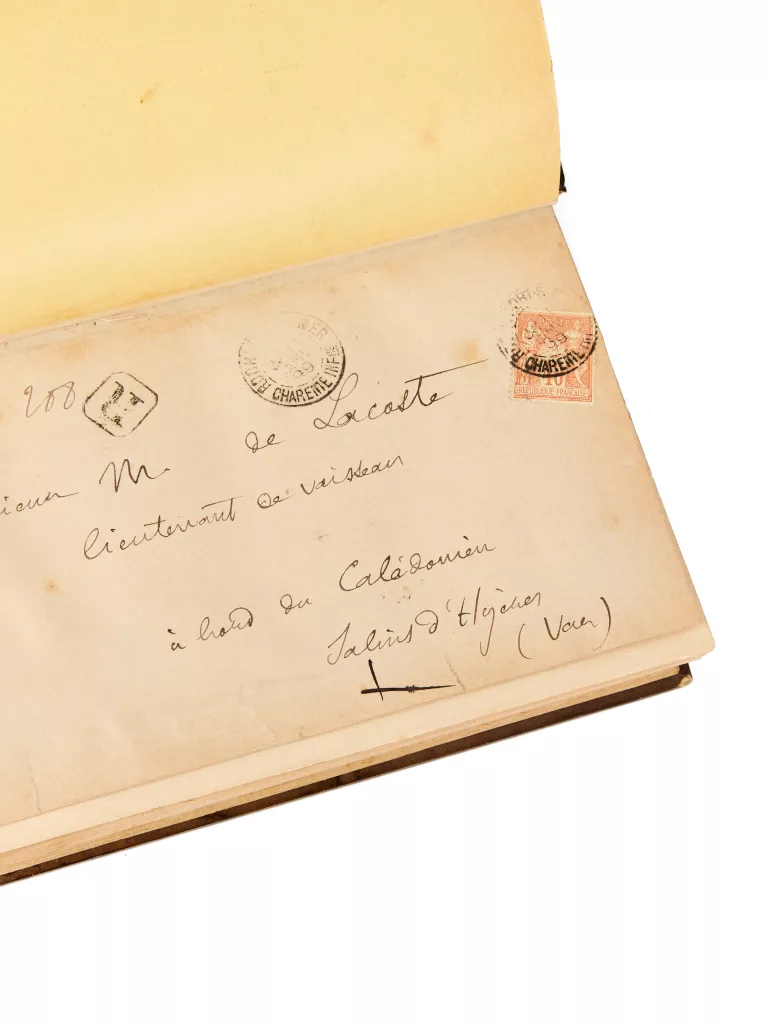 208
R
ROCHEFORT-S-MER
CHARENTE INFRE
89
CHARENTE INFRE
89
10
REPUBLIQUE FRANCAISE
M. de Lacoste
lieutenant de vaisseau
à bord du Calédonien
Salins d'Hyères
(Var)